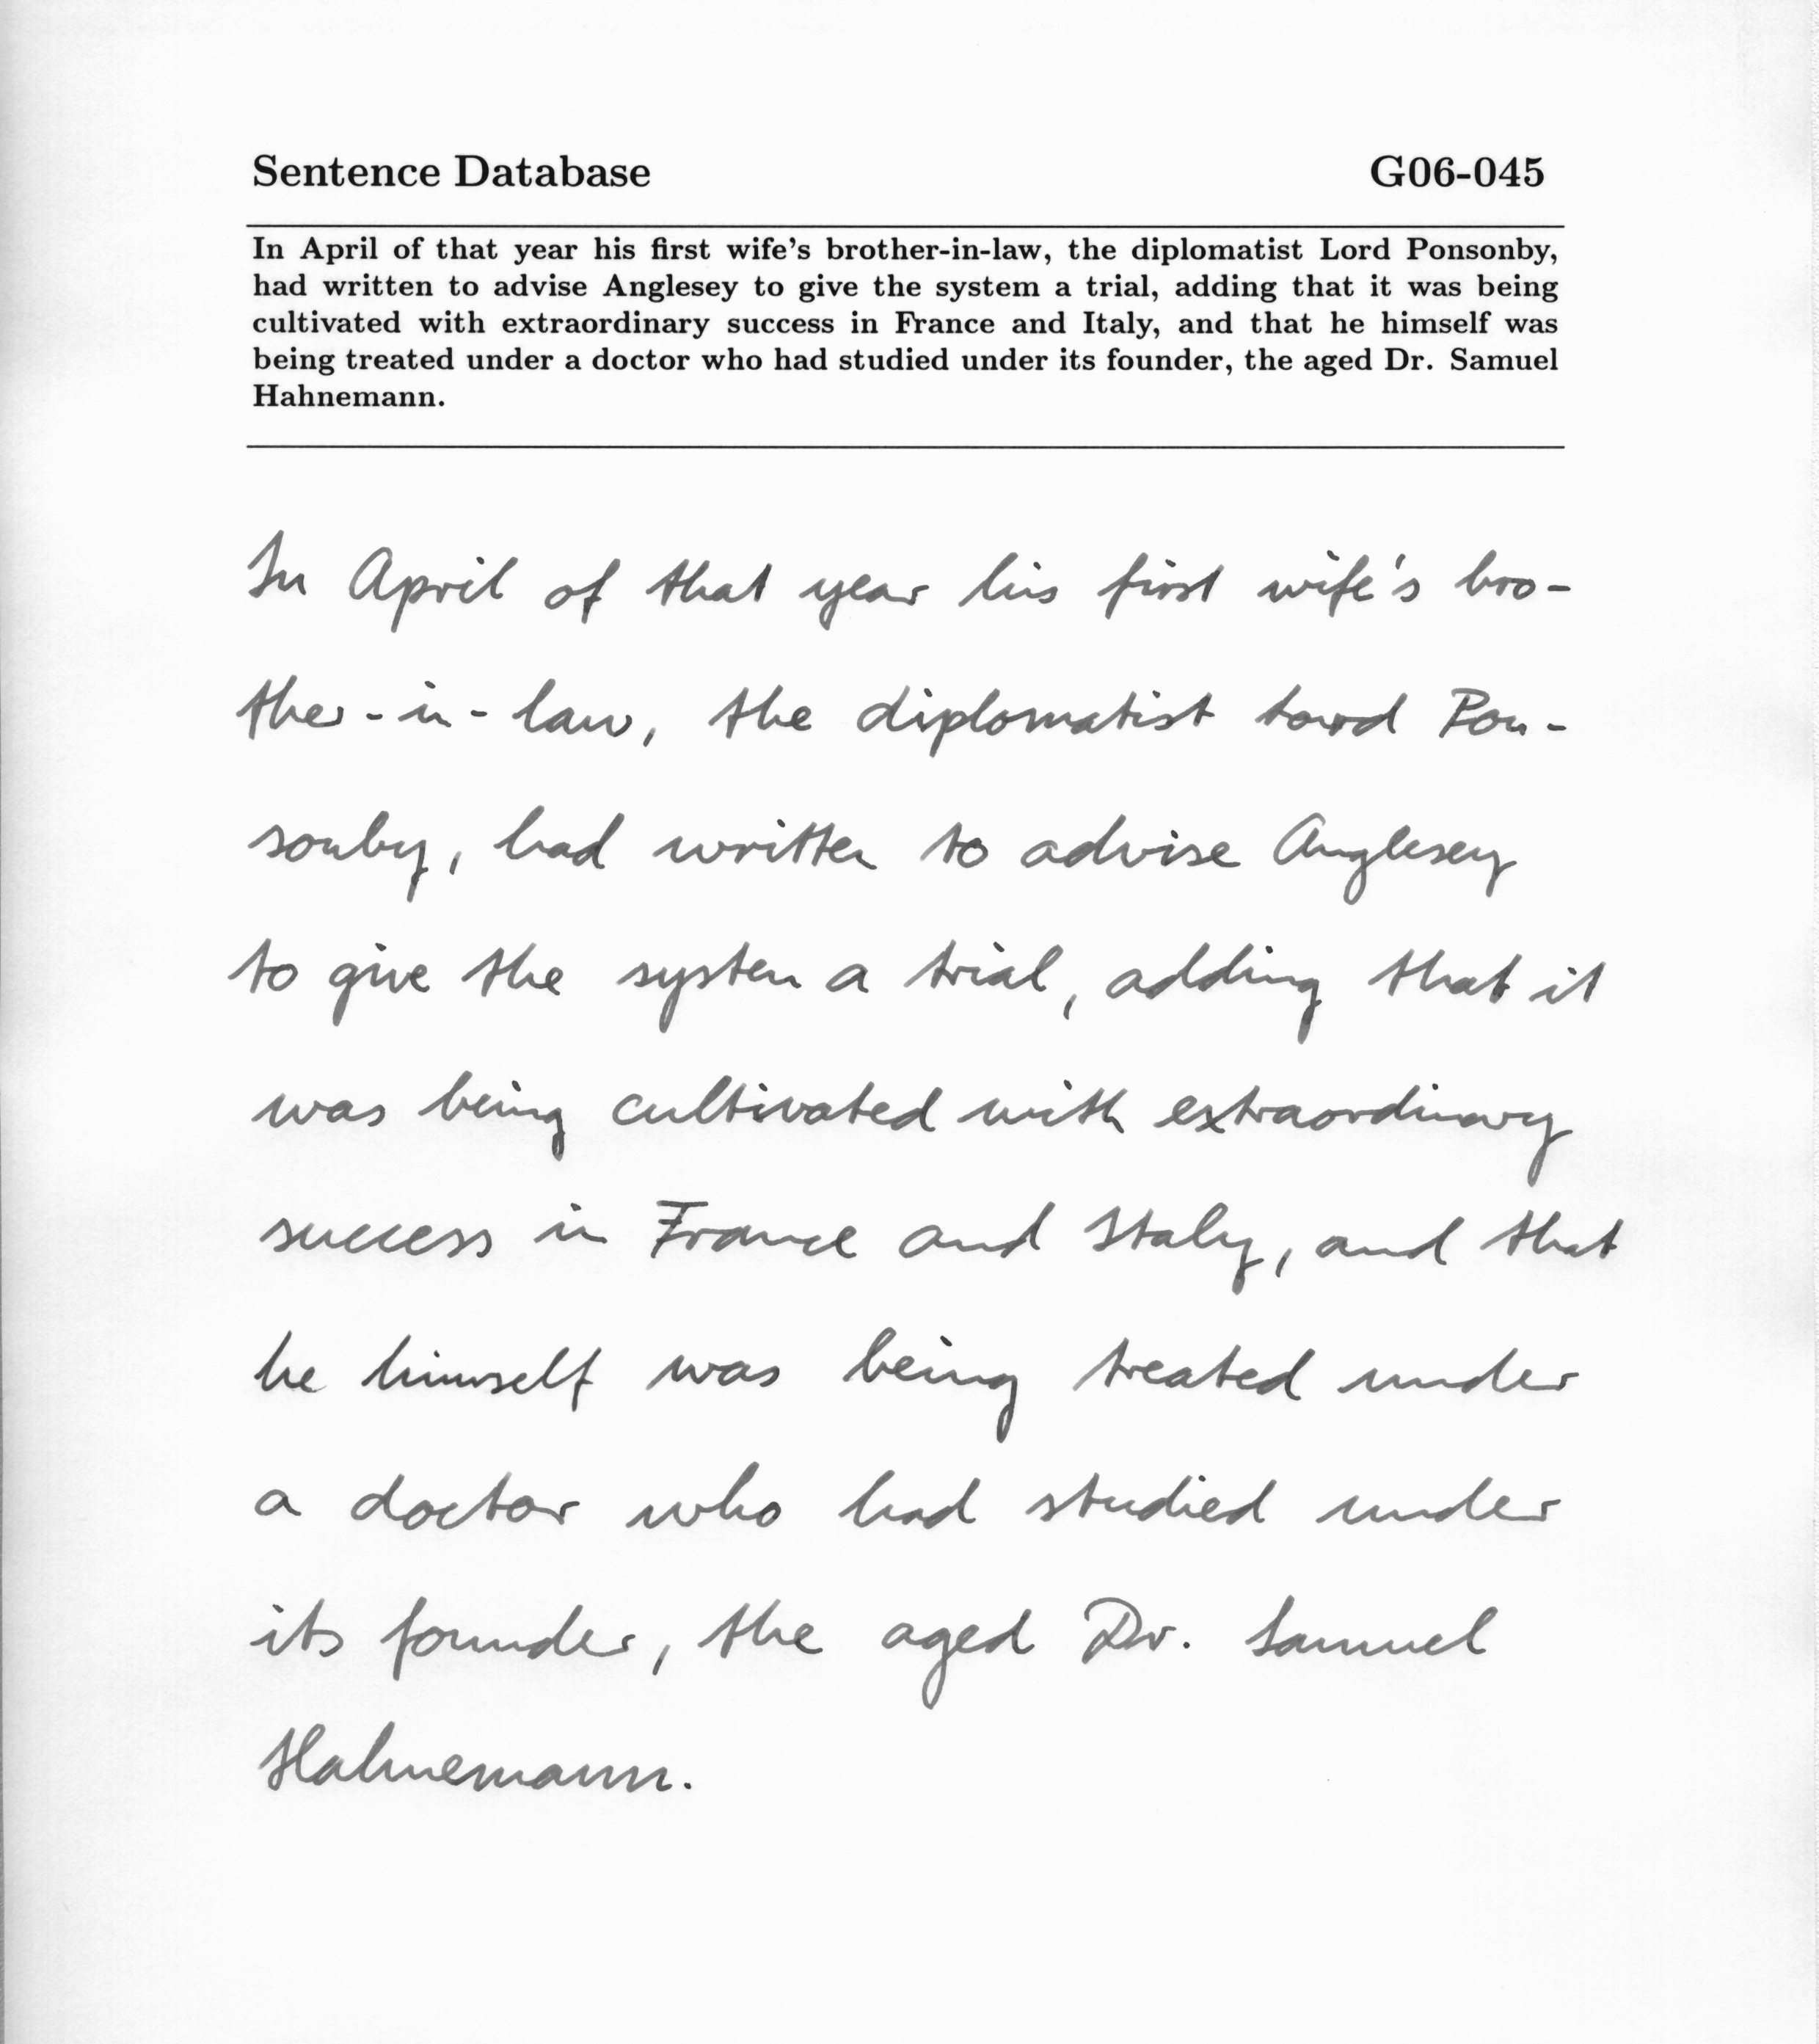 Sentence Database G06-045
In April of that year his first wife's brother-in-law, the diplomatist Lord Ponsonby,
had written to advise Anglesey to give the system a trial, adding that it was being
cultivated with extraordinary success in France and Italy, and that he himself was
being treated under a doctor who had studied under its founder, the aged Dr. Samuel
Hahnemann.
In April of that year his first wife's bro-
ther-in-law, the diplomatist Lord Pon-
sonby, had written to advise Anglesey
to give the system a trial, adding that it
was being cultivated with extraordinary
success in France and Italy, and that
he himself was being treated under
a doctor who had studied under
its founder, the aged Dr. Samuel
Hahnemann.